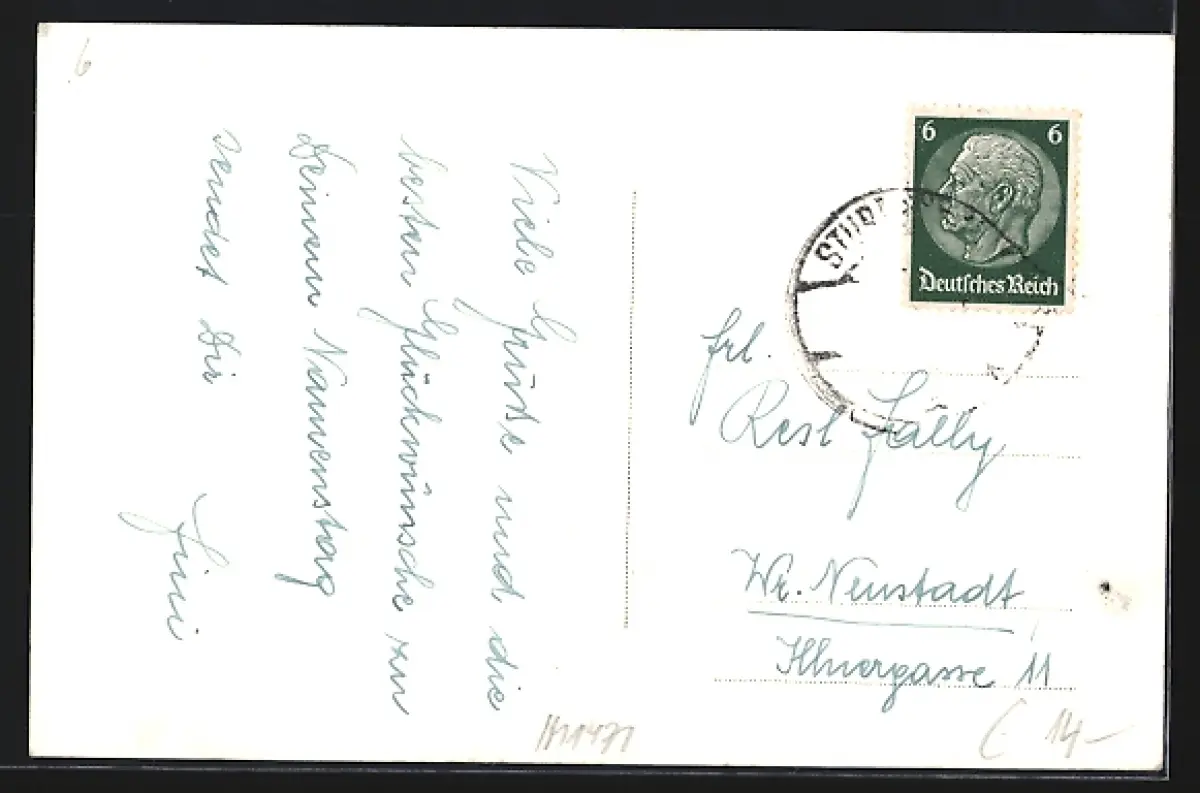 6
Viele Grüße und die
besten Glückwünsche zu
Deinem Namenstag
sendet Dir
Fini
6 6
Deutsches Reich
Frl.
Resl
Wr. Neustadt
11
14-